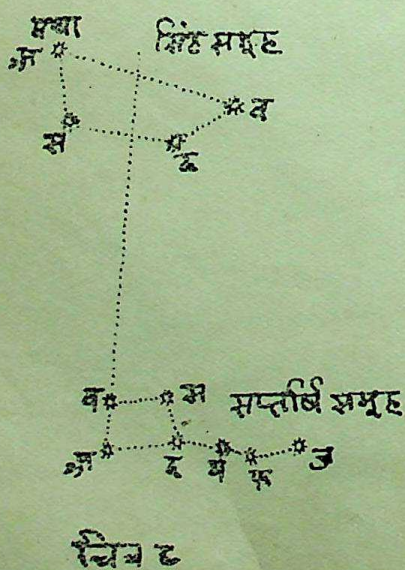 मघा
अ
सिंह समूह
ब
स
द
ब
स
सप्तर्षि समूह
अ
द
य
फ
ज
चित्र ८